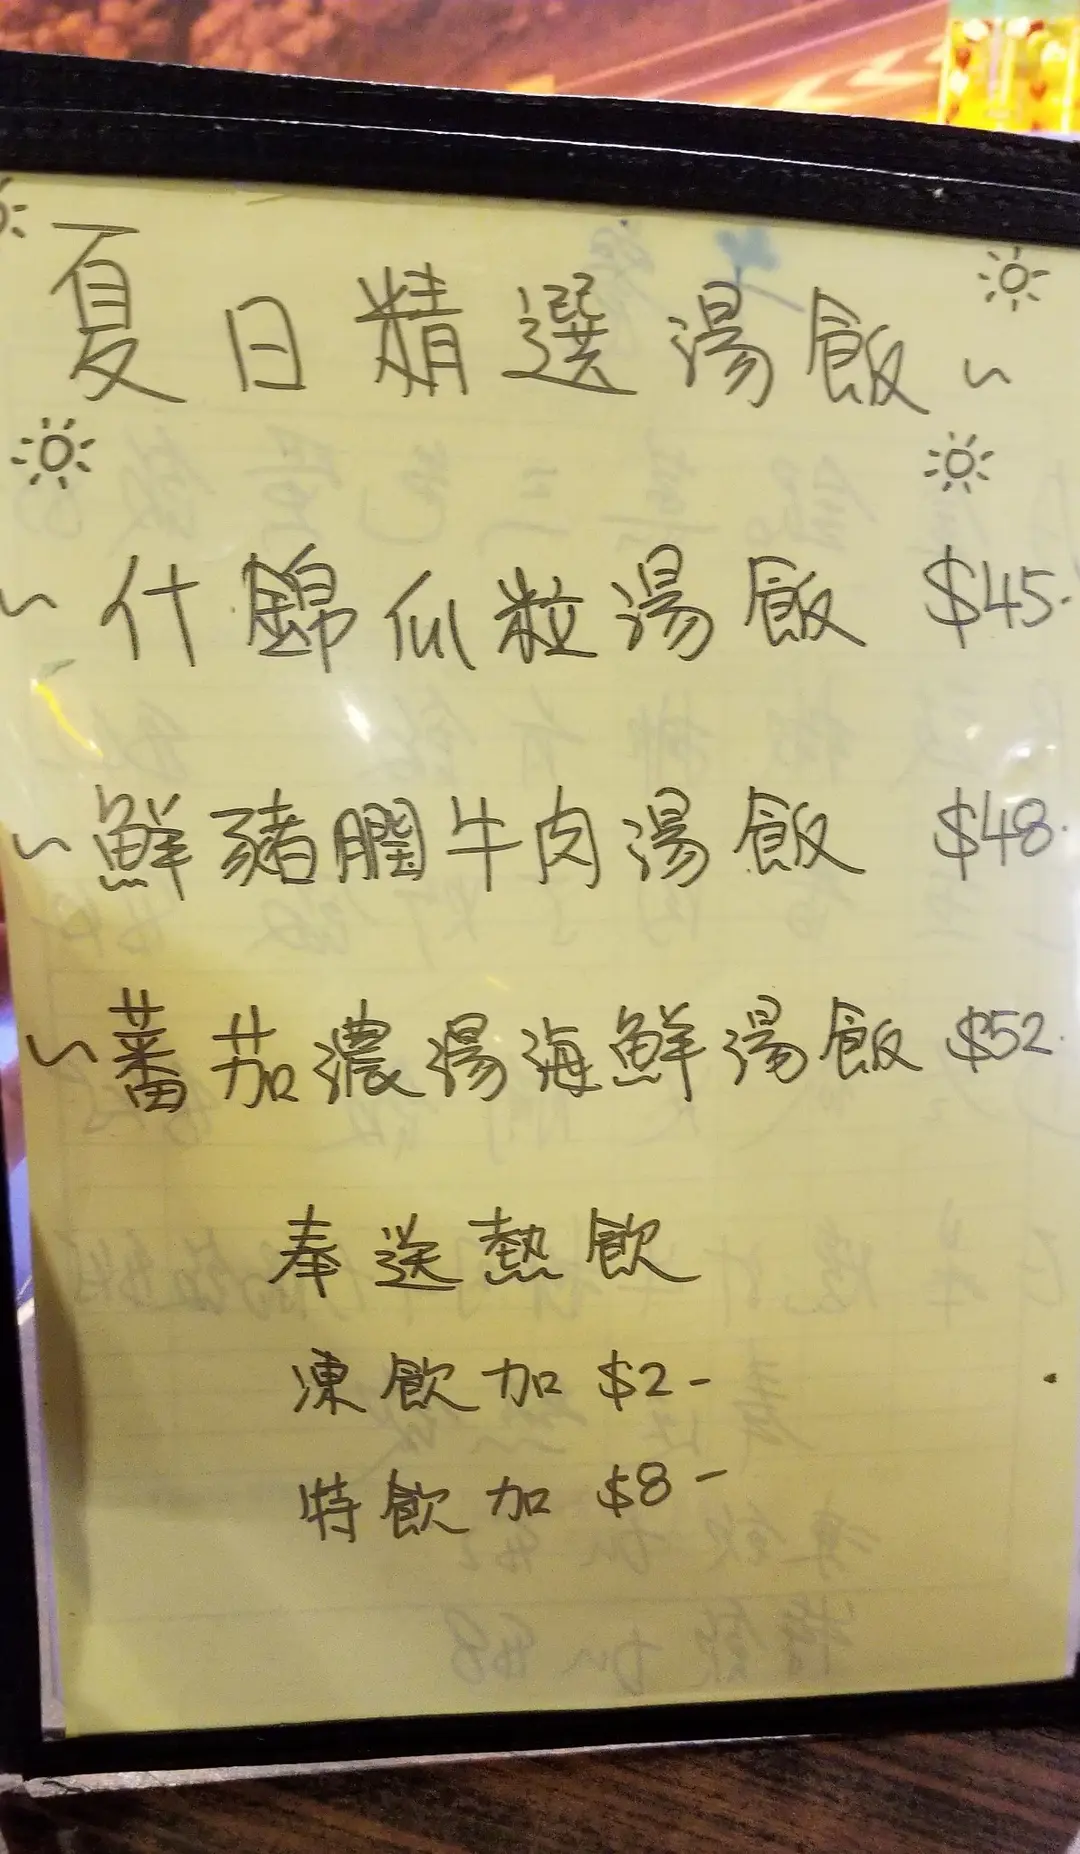 夏日精選湯飯~
~什錦瓜粒湯飯 $45.
~鮮豬膶牛肉湯飯 $48.
~蕃茄濃湯海鮮湯飯 $52.
奉送熱飲
凍飲加 $2-
特飲加 $8-